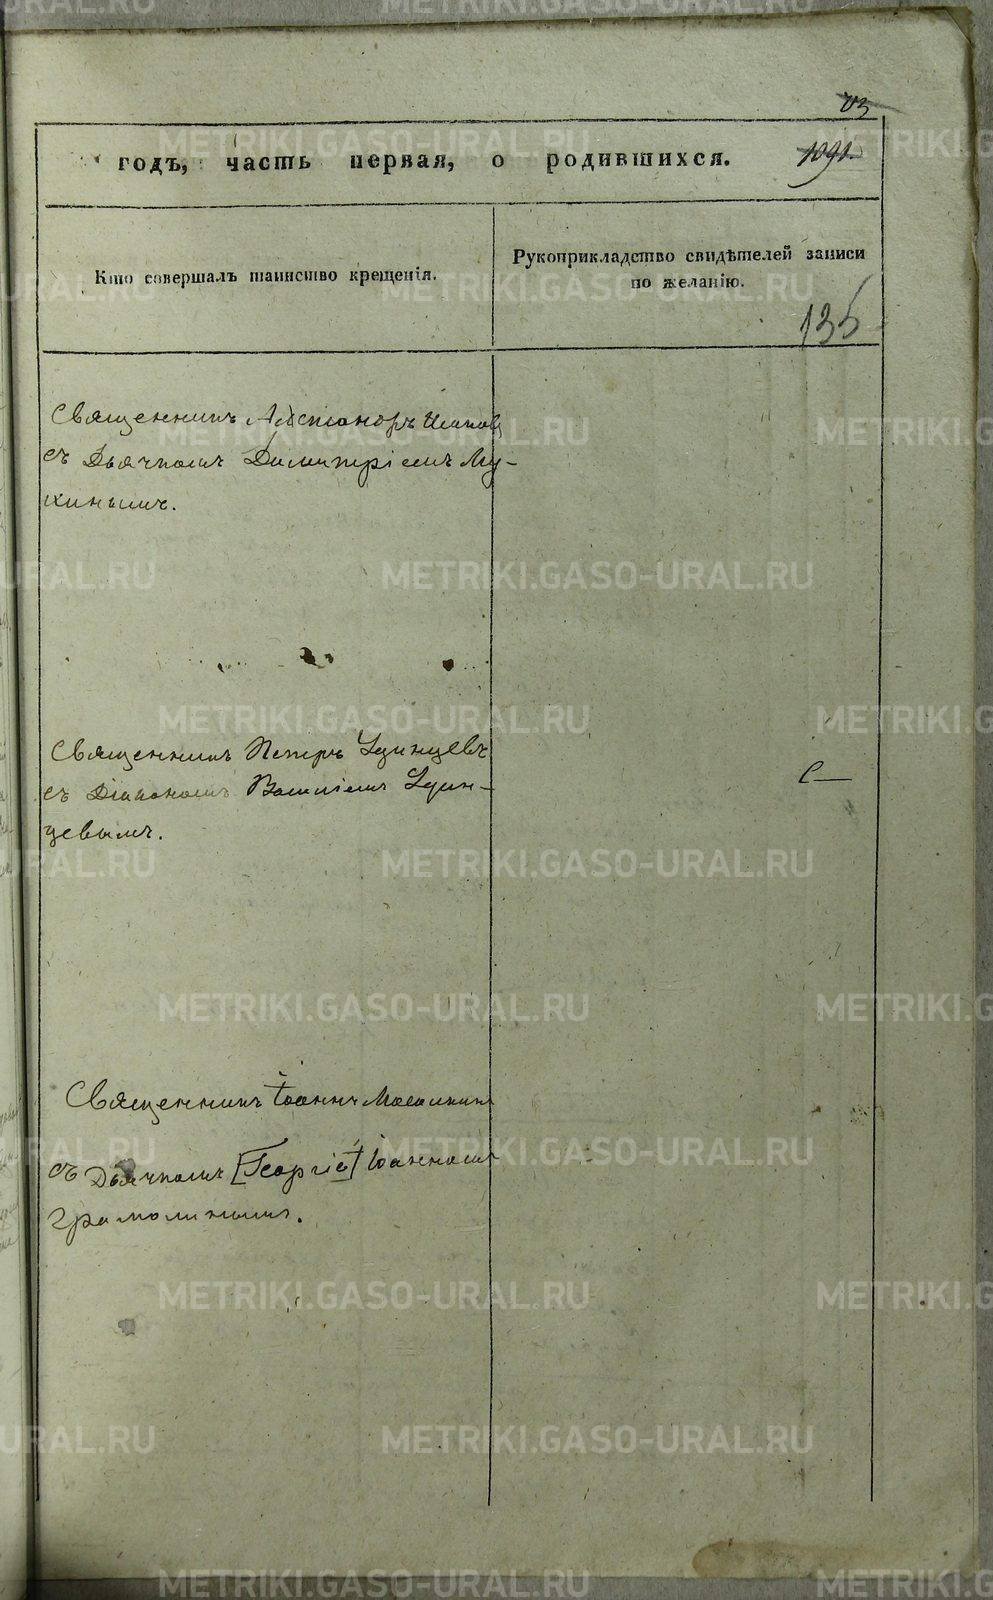 03
годъ, часть первая, о родившихся. 1091.
Кто совершалъ таинство крещенія.
Рукоприкладство свидѣтелей записи
по желанію.
135
Священникъ
съ Дьячкомъ Димитріемъ Му-
хинымъ.
Священникъ Петръ Удинцевъ
съ Діакономъ Василіемъ Удин-
цевымъ.
С—
Священникъ Іоаннъ
съ Дьячкомъ [Георгіе] Іоанномъ
Грамолинымъ.
METRIKI.GASO-URAL.RU